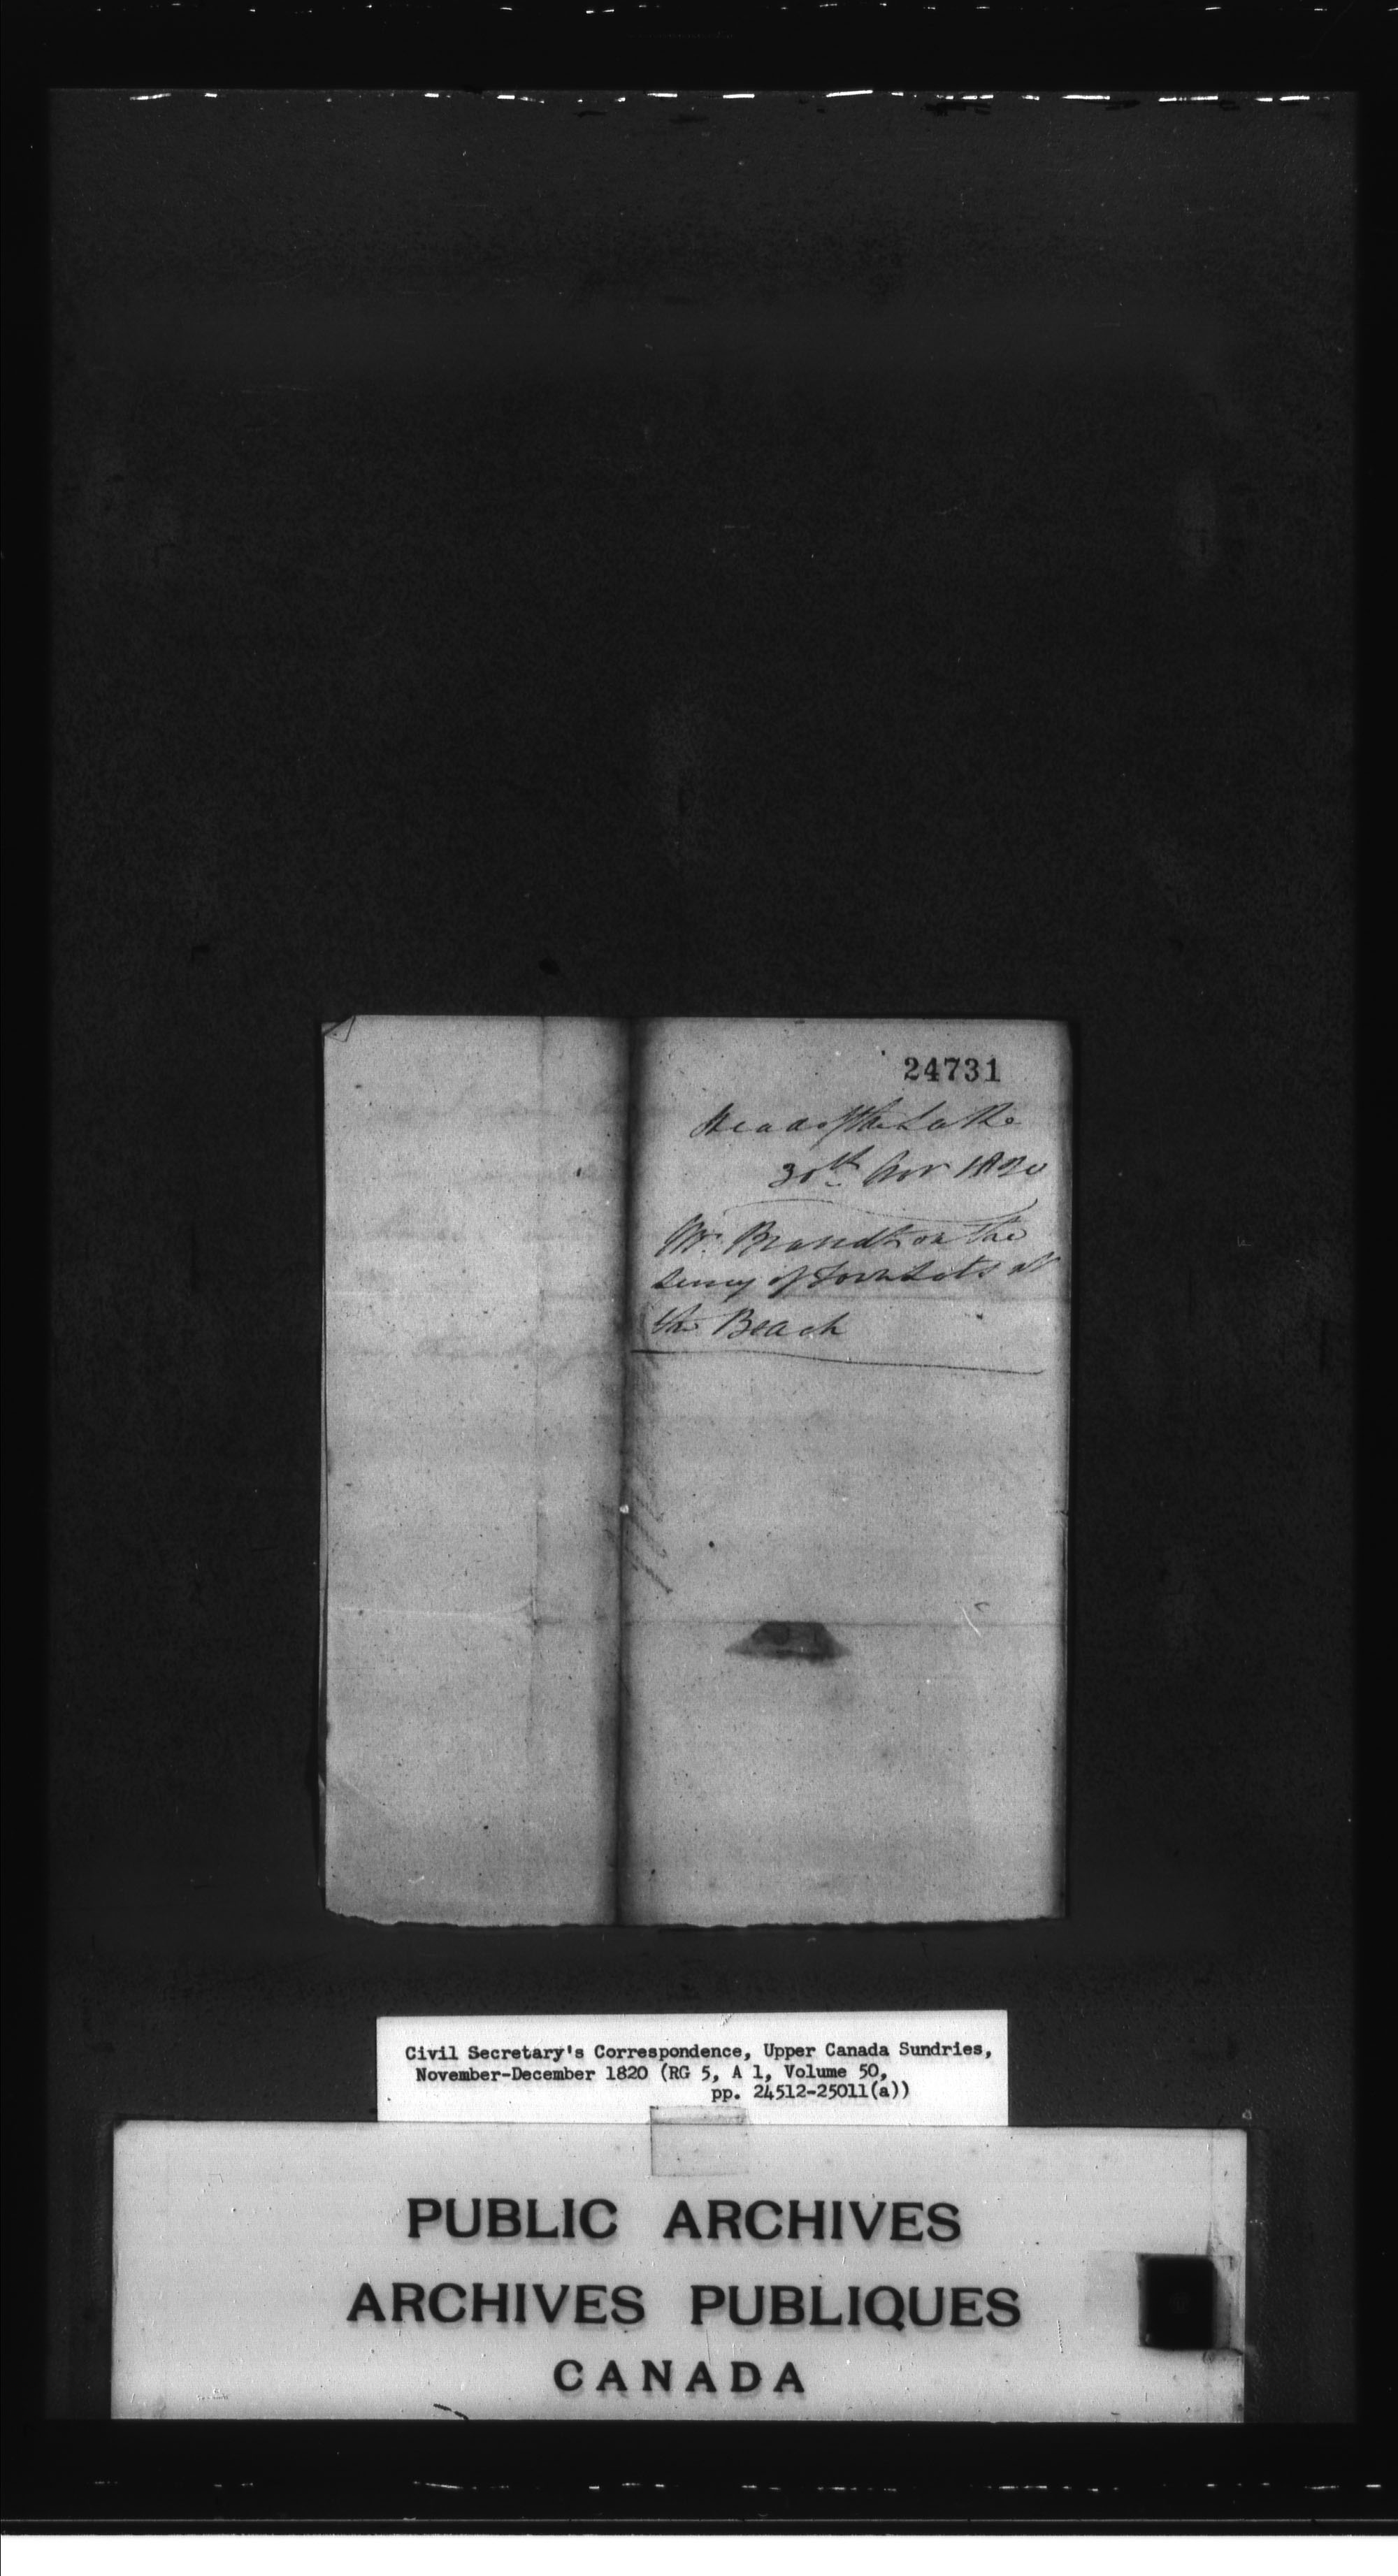 24731
Head of the Lake
30th Nov 1820
Mr. Brandt on the
of Town Lots at
the Beach
Civil Secretary's Correspondence, Upper Canada Sundries,
November-December 1820 (RG 5, A 1, Volume 50,
pp. 24512-25011(a))
PUBLIC ARCHIVES
ARCHIVES PUBLIQUES
CANADA